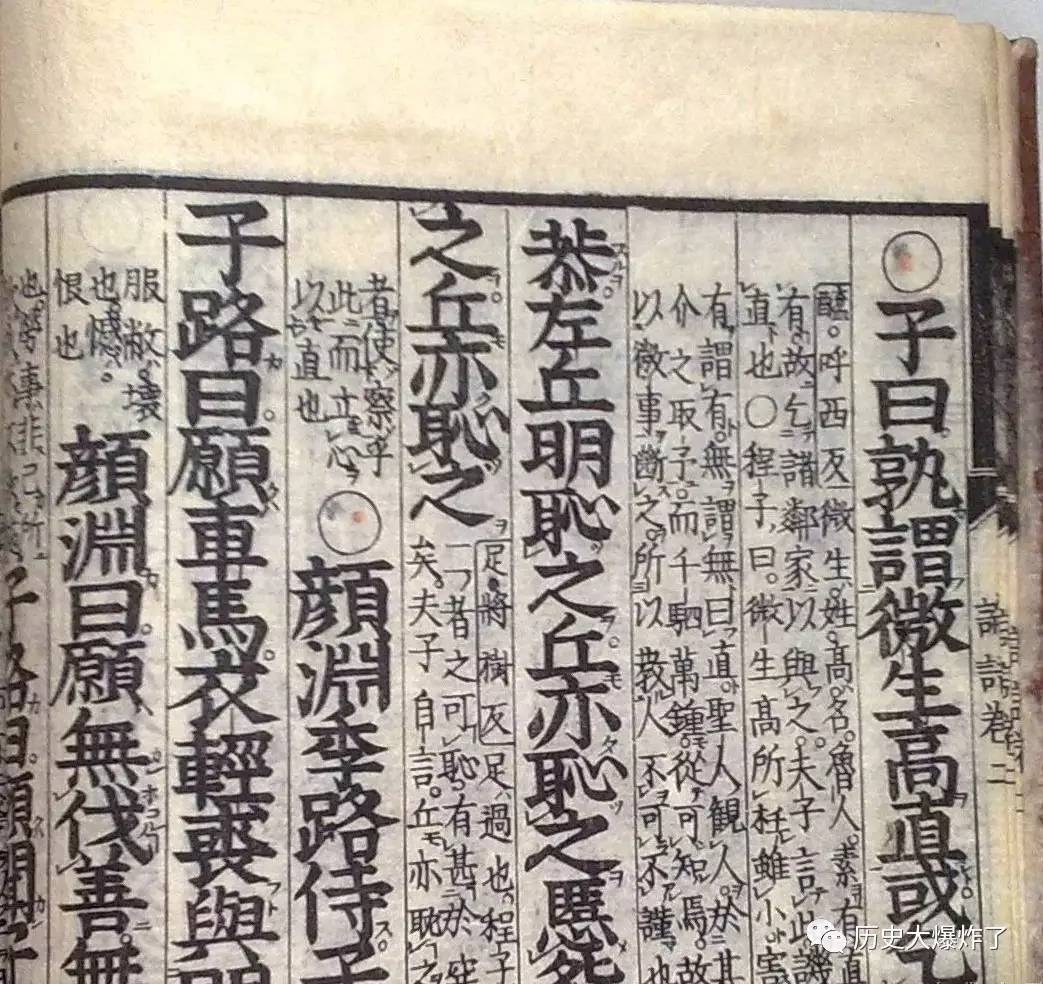 論語卷二
○子曰孰謂微生高直或乞
醯呼西反微生姓高名魯人素有直
有故乞諸鄰家以與之夫子言此譏
直也○程子曰微生高所枉雖小害
有謂有無謂無曰直聖人觀人於其
介之取予而千駟萬鍾從可知焉故
以微事斷之所以教人不可不謹也
恭左丘明恥之丘亦恥之匿怨
之丘亦恥之
足將樹反足過也程子
者之可恥有甚於
矣夫子自言丘亦恥之
者使察乎
此而立心
以直也
○顏淵季路侍子
子路曰願車馬衣輕裘與朋
服敝壞
也憾
恨也
顏淵曰願無伐善無
子路曰願聞子
历史大爆炸了